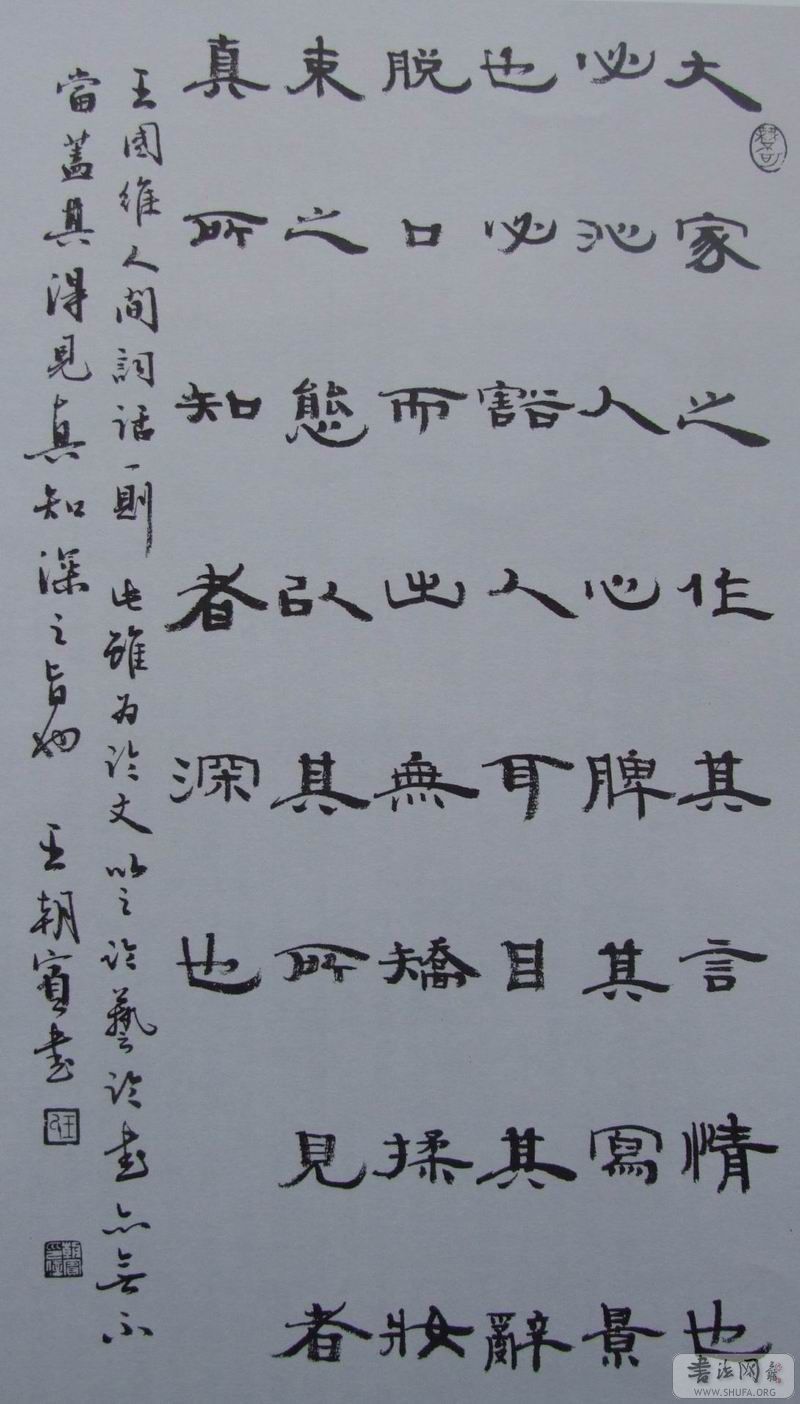 大家之作其言情也
必沁人心脾其寫景
也必豁人耳目其辭
脱口而出無矯揉妝
束之態以其所見者
真所知者深也
王國維人間詞話一則 此雖為論文以之論藝論書亦無不
當蓋其得見真知深之旨也 王朝賓書
書法网
WWW.SHUFA.ORG